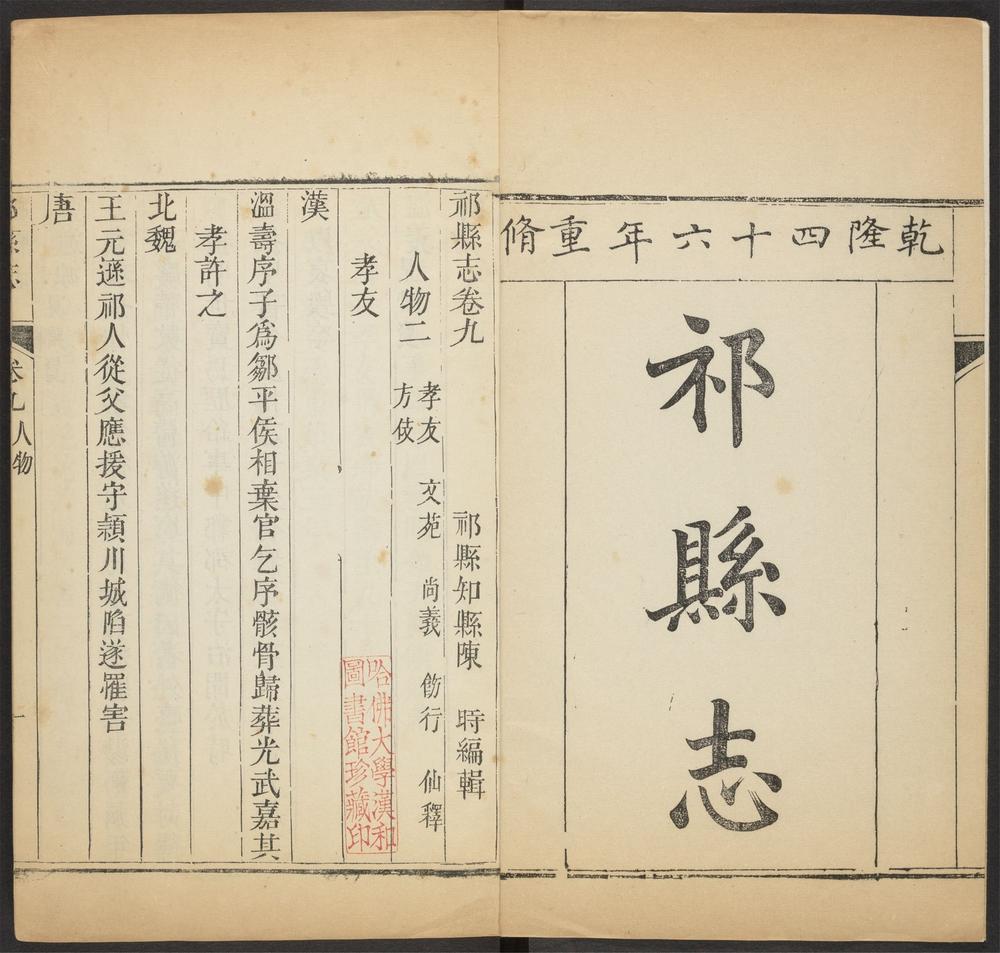 乾隆四十六年重脩
祁縣志
祁縣志卷九 祁縣知縣陳 時編輯
人物二 孝友 文苑 尚義 飭行 仙釋
方伎
孝友
漢
溫壽序子為鄒平侯相棄官乞序骸骨歸葬光武嘉其
孝許之
北魏
王元遜祁人從父應援守潁川城陷遂罹害
唐
祁縣志 卷九人物 一
哈佛大學漢和
圖書館珍藏印